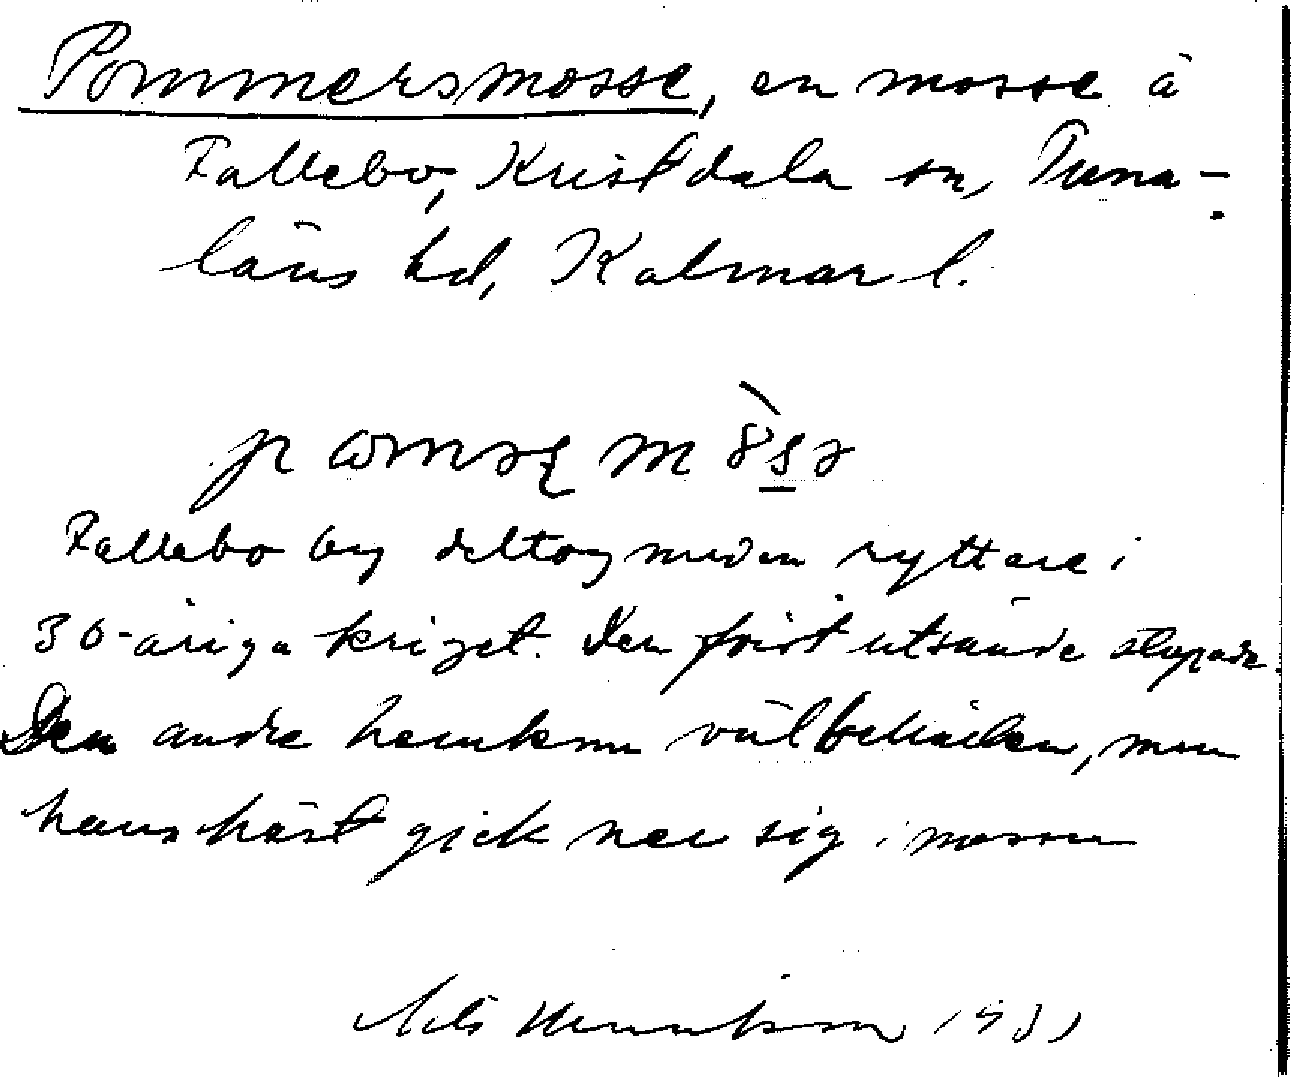 Pommersmosse, en mosse å
Fallebo, Kristdala sn, Tuna-
läns hd, Kalmar l.
Fallebo by deltog med en ryttare i
30-åriga kriget. Den först utsände stupade.
Den andre hemkom välbehållen, men
hans häst gick ner sig i mossen
Nils 19